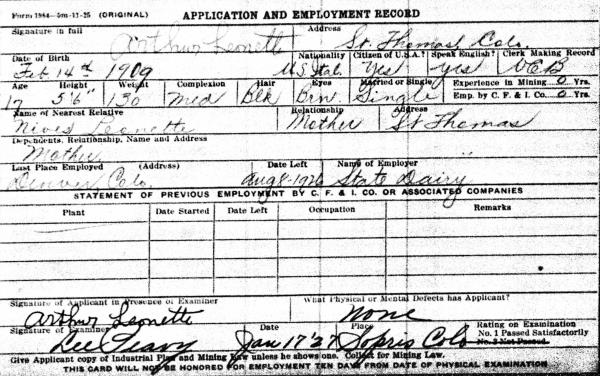 Form 1984—5m-11-25 (ORIGINAL) APPLICATION AND EMPLOYMENT RECORD
Signature in full Address
Arthur Leonetti St. Thomas, Colo.
Date of Birth Nationality Citizen of U.S.A.? Speak English? Clerk Making Record
Feb 14th 1909 U.S. Ital. Yes Yes V.C.B
Age Height Weight Complexion Hair Eyes Married or Single Experience in Mining 0 Yrs.
17 5'6" 130 Med Blk Brn. Single Emp. by C. F. & I. Co. 0 Yrs.
Name of Nearest Relative Relationship Address
Leonette Mother St Thomas
Dependents, Relationship, Name and Address
Mother
Last Place Employed (Address) Date Left Name of Employer
Denver Colo. Aug 8-1926 State Dairy
STATEMENT OF PREVIOUS EMPLOYMENT BY C. F. & I. CO. OR ASSOCIATED COMPANIES
Plant Date Started Date Left Occupation Remarks
Signature of Applicant in Presence of Examiner What Physical or Mental Defects has Applicant?
Arthur Leonette None
Signature of Examiner Date Place Rating on Examination
Lee Jan 17 '27 Sopris Colo No. 1 Passed Satisfactorily
No. 2 Not Passed
Give Applicant copy of Industrial Plan and Mining Law unless he shows one. Collect for Mining Law.
THIS CARD WILL NOT BE HONORED FOR EMPLOYMENT TEN DAYS FROM DATE OF PHYSICAL EXAMINATION